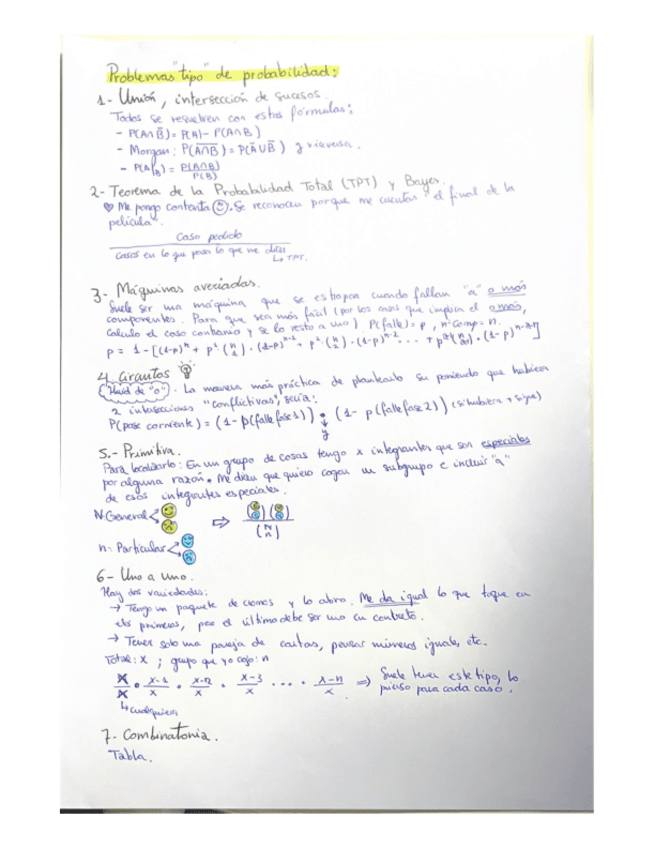 Problemas "tipo" de probabilidad:
1- Unión, intersección de sucesos.
Todos se resuelven con estas fórmulas:
- P(A∩B̄) = P(A) - P(A∩B)
- Morgan: P(A̅∩̅B̅) = P(Ā∪B̄) y viceversa.
- P(A/B) = P(A∩B) / P(B)
2- Teorema de la Probabilidad Total (TPT) y Bayes.
Me pongo contenta. Se reconocen porque me cuentan "el final de la
película".
Caso pedido
casos en lo que pasa lo que me dicen
↳ TPT.
3- Máquinas averiadas.
Suele ser una máquina que se estropea cuando fallan "a" o más
componentes. Para que sea más fácil (por los casos que implica el o más,
calculo el caso contrario y se lo resto a uno) P(falle) = p, nº comp = n.
p = 1 - [(1-p)^n + p^1 · (n 1) · (1-p)^n-1 + p^2 · (n 2) · (1-p)^n-2 ... +
4. Circuitos
(Huid de "o"). La manera más práctica de plantearlo suponiendo que hubiera
2 intersecciones "conflictivas", sería:
P(pase corriente) = (1 - p(falle fase 1)) · (1 - p(falle fase 2)) (si hubiera + sigue)
y
5.- Primitiva.
Para localizarlo: En un grupo de cosas tengo x integrantes que son especiales
por alguna razón. Me dicen que quiero coger un subgrupo e incluir "a"
de esos integrantes especiales.
N: General
⇒ ( ) ( ) / (N n)
n: Particular
6- Uno a uno.
Hay dos variedades:
→ Tengo un paquete de cromos y lo abro. Me da igual lo que toque en
los primeros, pero el último debe ser uno en concreto.
→ Tener solo una pareja de cartas, pensar números iguales, etc.
Total: x ; grupo que yo cojo: n
x/x · x-1/x · x-2/x · x-3/x · ... · x-n/x ⇒ Suele tener este tipo, lo
pienso para cada caso.
↳ cualquiera
7- Combinatoria.
Tabla.